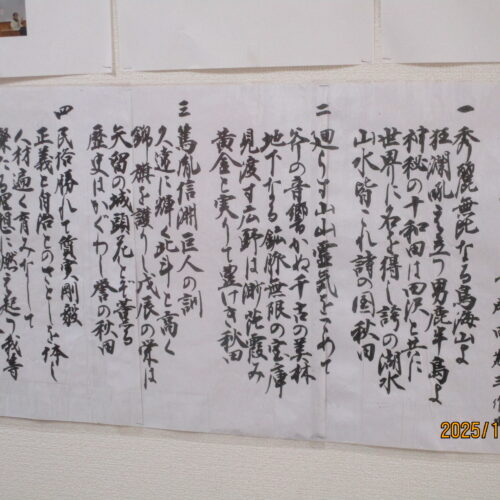 成田為三作曲
一 秀麗無比なる鳥海山よ
狂瀾吼え立つ男鹿半島よ
神秘の十和田は田沢と共に
世界に名を得し誇の湖水
山水皆これ詩の国秋田
二 廻らす山山霊気をこめて
斧の音響かぬ千古の美林
地下なる鉱脈無限の宝庫
見渡す広野は渺茫霞み
黄金と実りて豊けき秋田
三 篤胤信淵巨人の訓
久遠に輝く北斗と高く
錦旗を護りし戊辰の栄は
矢留の城頭花とぞ薫る
歴史はかぐわし誉の秋田
四 民俗勝れて質実剛毅
正義と自治とのさとしを体し
人材遍く育みなして
燦たる理想に燃え起つ我等
2025/1